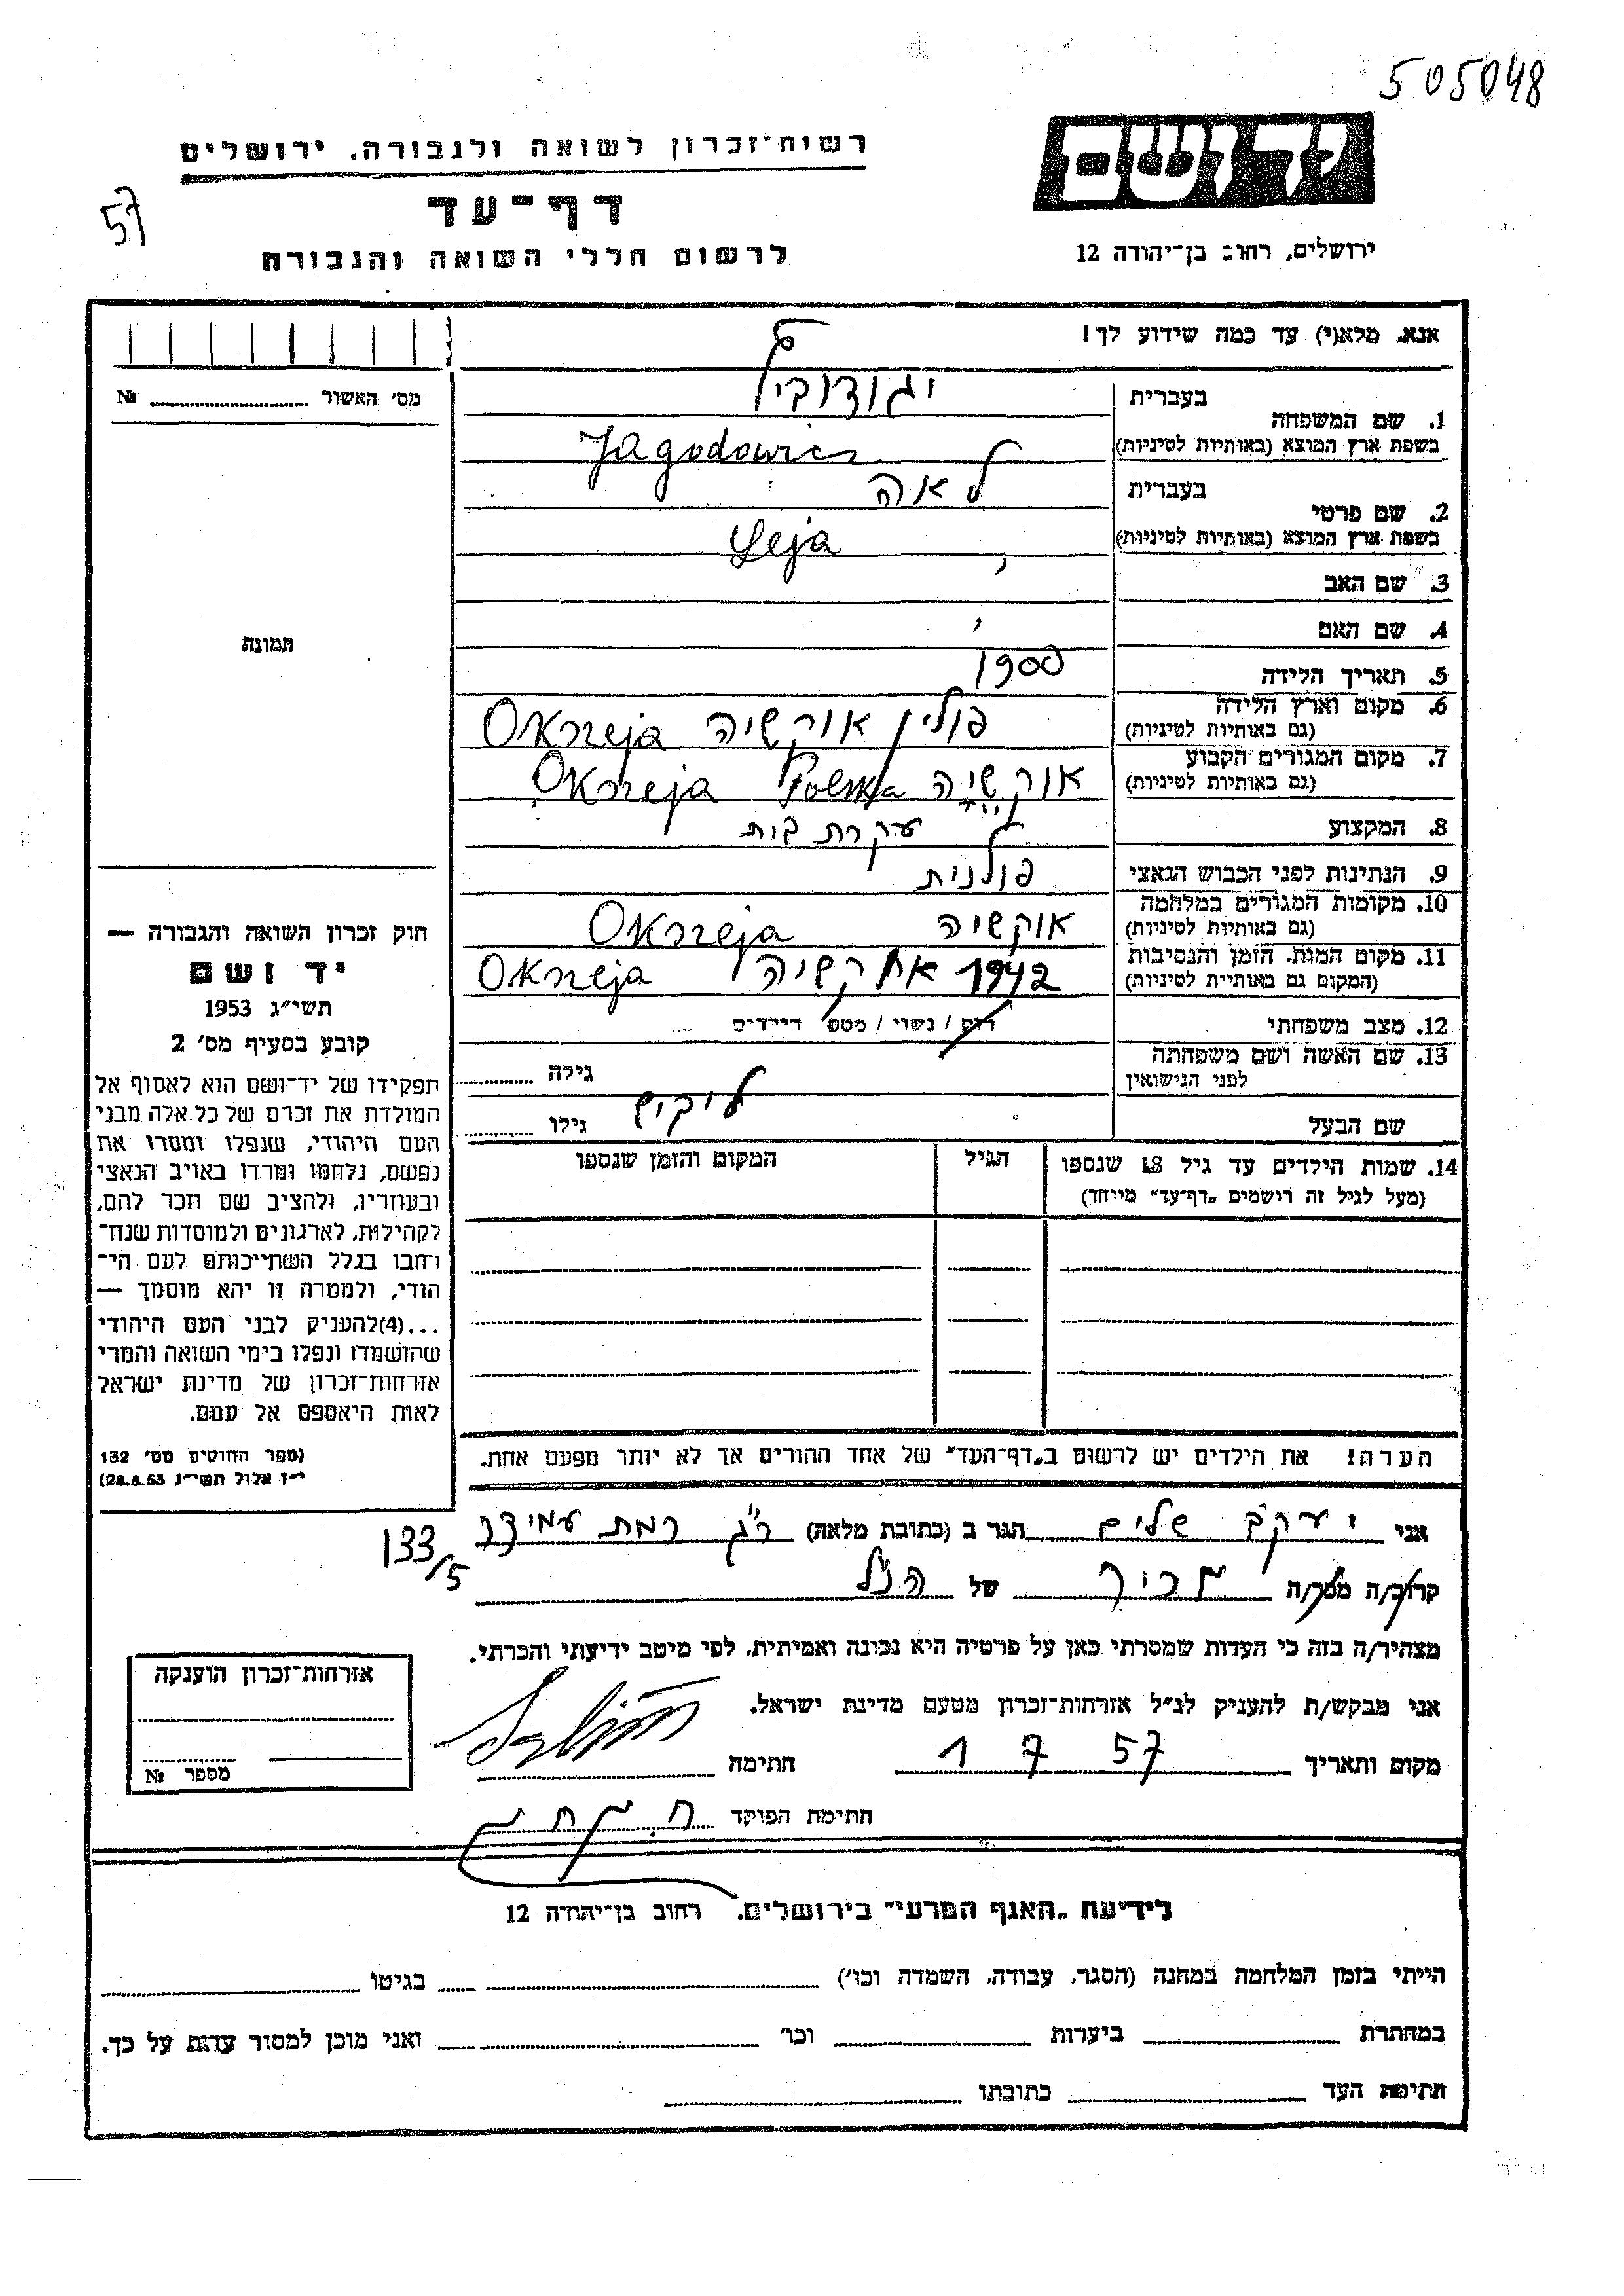 505048
יד ושם
רשות־זכרון לשואה ולגבורה, ירושלים
דף־עד
57
לרשום חללי השואה והגבורה
ירושלים, רחוב בן־יהודה 12
אנא, מלא(י) עד כמה שידוע לך!
מס׳ האשור № 
בעברית
1. שם המשפחה
בשפת ארץ המוצא (באותיות לטיניות)
יגודוביץ
Jagodowicz
בעברית
2. שם פרטי
בשפת ארץ המוצא (באותיות לטיניות)
לאה
Leja
3. שם האב
4. שם האם
5. תאריך הלידה 1900
6. מקום וארץ הלידה
(גם באותיות לטיניות)
פולין אוקשיה Okrzeja
7. מקום המגורים הקבוע
(גם באותיות לטיניות)
אוקשיה Polska Okrzeja
8. המקצוע עקרת בית
9. הנתינות לפני הכבוש הנאצי פולנית
10. מקומות המגורים במלחמה
(גם באותיות לטיניות)
אוקשיה Okrzeja
11. מקום המות, הזמן והנסיבות
(המקום גם באותיות לטיניות)
1942 אוקשיה Okrzeja
12. מצב משפחתי רווק / נשוי / מספר הילדים ....
13. שם האשה ושם משפחתה
לפני הנישואין
גילה
שם הבעל
גילו
14. שמות הילדים עד גיל 18 שנספו
(מעל לגיל זה רושמים „דף־עד״ מיוחד)
הגיל
המקום והזמן שנספו
הערה! את הילדים יש לרשום ב„דף־העד״ של אחד ההורים אך לא יותר מפעם אחת.
תמונה
חוק זכרון השואה והגבורה —
יד ושם
תשי״ג 1953
קובע בסעיף מס׳ 2
תפקידו של יד־ושם הוא לאסוף אל
המולדת את זכרם של כל אלה מבני
העם היהודי, שנפלו ומסרו את
נפשם, נלחמו ומרדו באויב הנאצי
ובעוזריו, ולהציב שם וזכר להם,
לקהילות, לארגונים ולמוסדות שנח־
רבו בגלל השתייכותם לעם הי־
הודי, ולמטרה זו יהא מוסמך —
...(4)להעניק לבני העם היהודי
שהושמדו ונפלו בימי השואה והמרי
אזרחות־זכרון של מדינת ישראל
לאות היאספם אל עמם.
(ספר החוקים מס׳ 132
י״ז אלול תשי״ג 28.8.53)
אני יעקב שלים הגר ב (כתובת מלאה) ר״ג רמת עמידר
133/5
קרוב/ה מכר/ה מכיר של הנ״ל
מצהיר/ה בזה כי העדות שמסרתי כאן על פרטיה היא נכונה ואמיתית, לפי מיטב ידיעתי והכרתי.
אני מבקש/ת להעניק לנ״ל אזרחות־זכרון מטעם מדינת ישראל.
מקום ותאריך 1 7 57 חתימה
חתימת הפוקד
אזרחות־זכרון הוענקה
מספר №
לידיעת „האגף המדעי״ בירושלים, רחוב בן־יהודה 12
הייתי בזמן המלחמה במחנה (הסגר, עבודה, השמדה וכו׳) בגיטו
במחתרת ביערות וכו׳ ואני מוכן למסור עדות על כך.
חתימת העד כתובתו